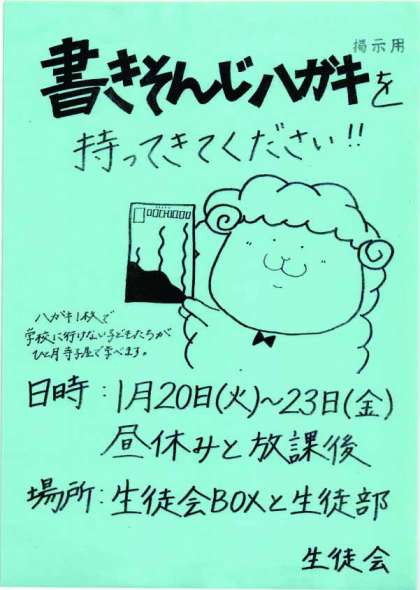 掲示用
書きそんじハガキを
持ってきてください!!
ハガキ1枚で
学校に行けない子どもたちが
ひと月寺子屋で学べます。
日時：1月20日(火)～23日(金)
昼休みと放課後
場所：生徒会BOXと生徒部
生徒会